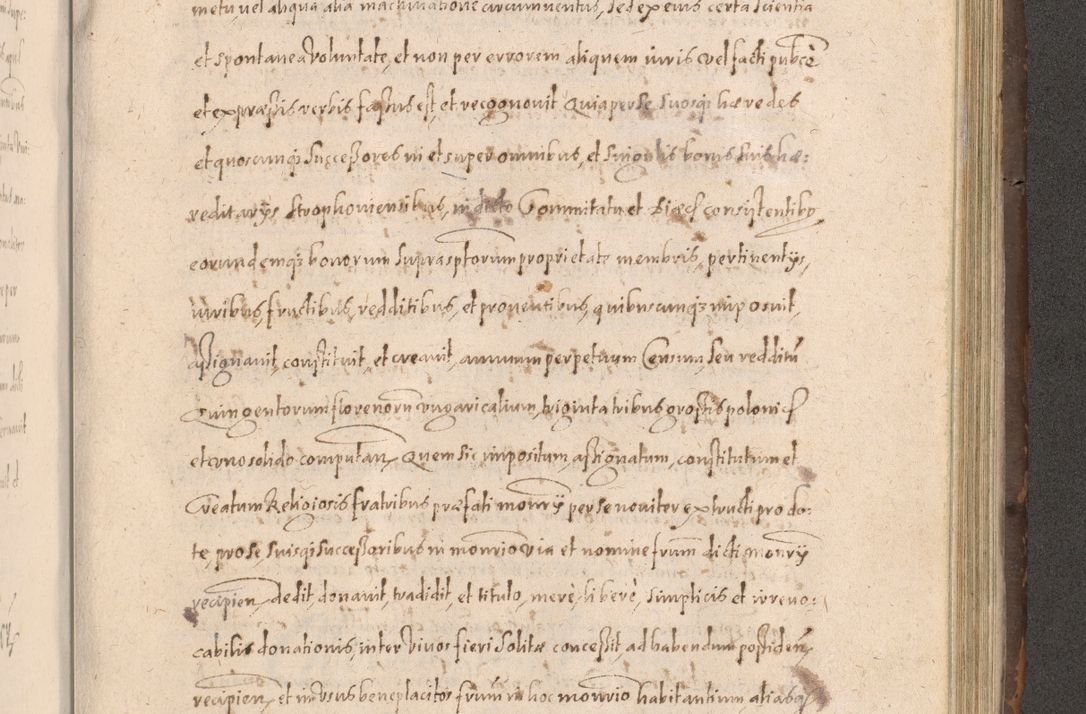 metu, vel aliqua alia machinatione circumventus, sed ex eius certa scientia
et spontanea Voluntate, et non per errorem aliquem iuris vel facti publce
et expraessis verbis fassus est, et recognovit Quia per se suosq3 haeredes
et quoscunq3 Successores in et super omnibus, et Singulis bonis suis hae:
reditarijs Strophoniensibus, in dicto Commitatu et consistentibq
eorundemq3 bonorum Supraspforum proprietate membris, pertinentijs,
iuribus, fructibus, redditibus, et proventibus, quibuscunq3 imposuit,
assignauit, constituit, et creauit, annuum perpetuum Censum, seu redditu
Quingentorum florenoru vngaricalium, triginta tribus grossis
et vno solido computan, Quem sic impositum, assignatum, constitutum et
Creatum Religiosis fratribus praefati monrij per se noviter extructi pro do:
te, pro se, suisq3 Successoribus in monrio via et nomine frum dicti monrij
recipien, dedit, donauit, tradidit, et titulo, merè, liberè, simplicis et irrevo:
cabilis donationis, inter Vivos fieri Solitae concessit, ad habendum possiden,
recipien, et in Vsus beneplacitos frum in hoc monrio habitantium aliasq3